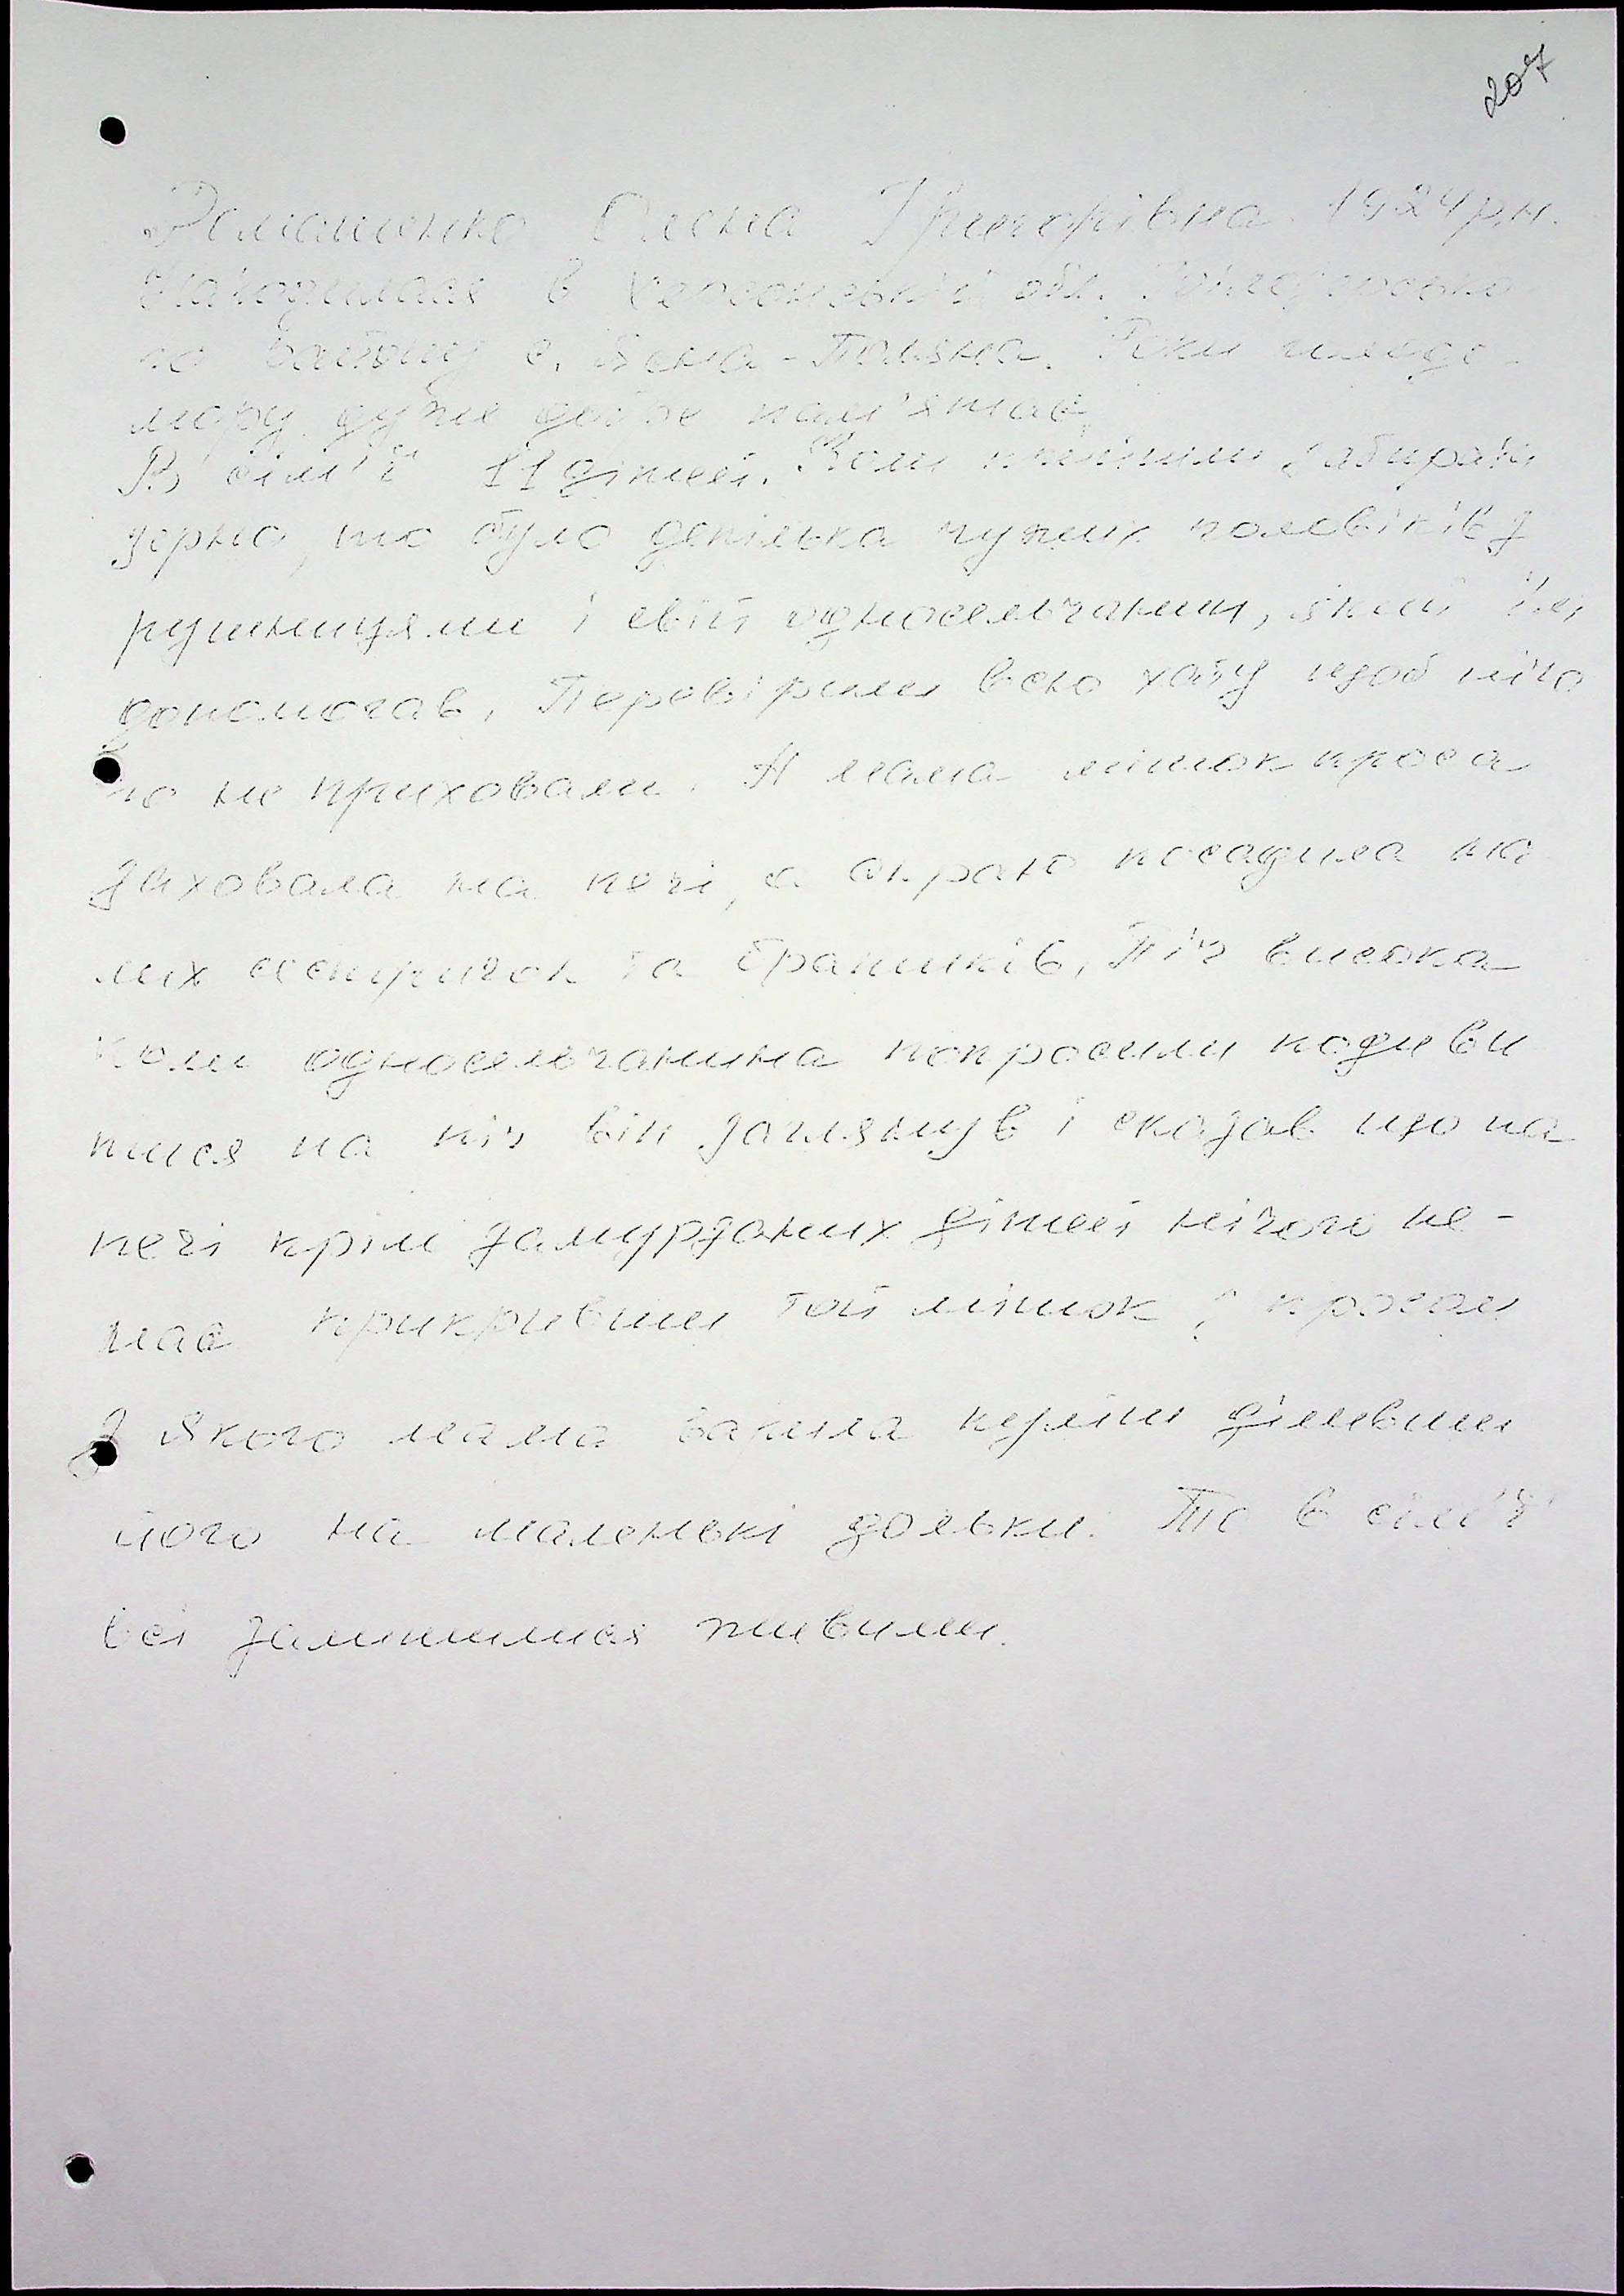 207
Олена Григорівна 1924 р.н.
в Херсонській обл.
району с. Ясна-Поляна. Роки голодо-
мору дуже добре пам'ятає.
В сім'ї 11 дітей. Коли прийшли забирати
зерно, то було декілька чужих чоловіків з
рушницями і свій односельчанин, який їм
допомогав. Перевірили всю хату щоб нічо
го не приховали. А мама мішок проса
заховала на печі, а скраю посадила ма
лих сестричок та братиків. Піч висока
коли односельчанина попросили подиви
тися на піч він заглянув і сказав що на
печі крім замурзаних дітей нічого не-
має прикривши той мішок з просом
З якого мама варила куліш діливши
його на маленькі дольки. То в сім'ї
всі залишилися живими.